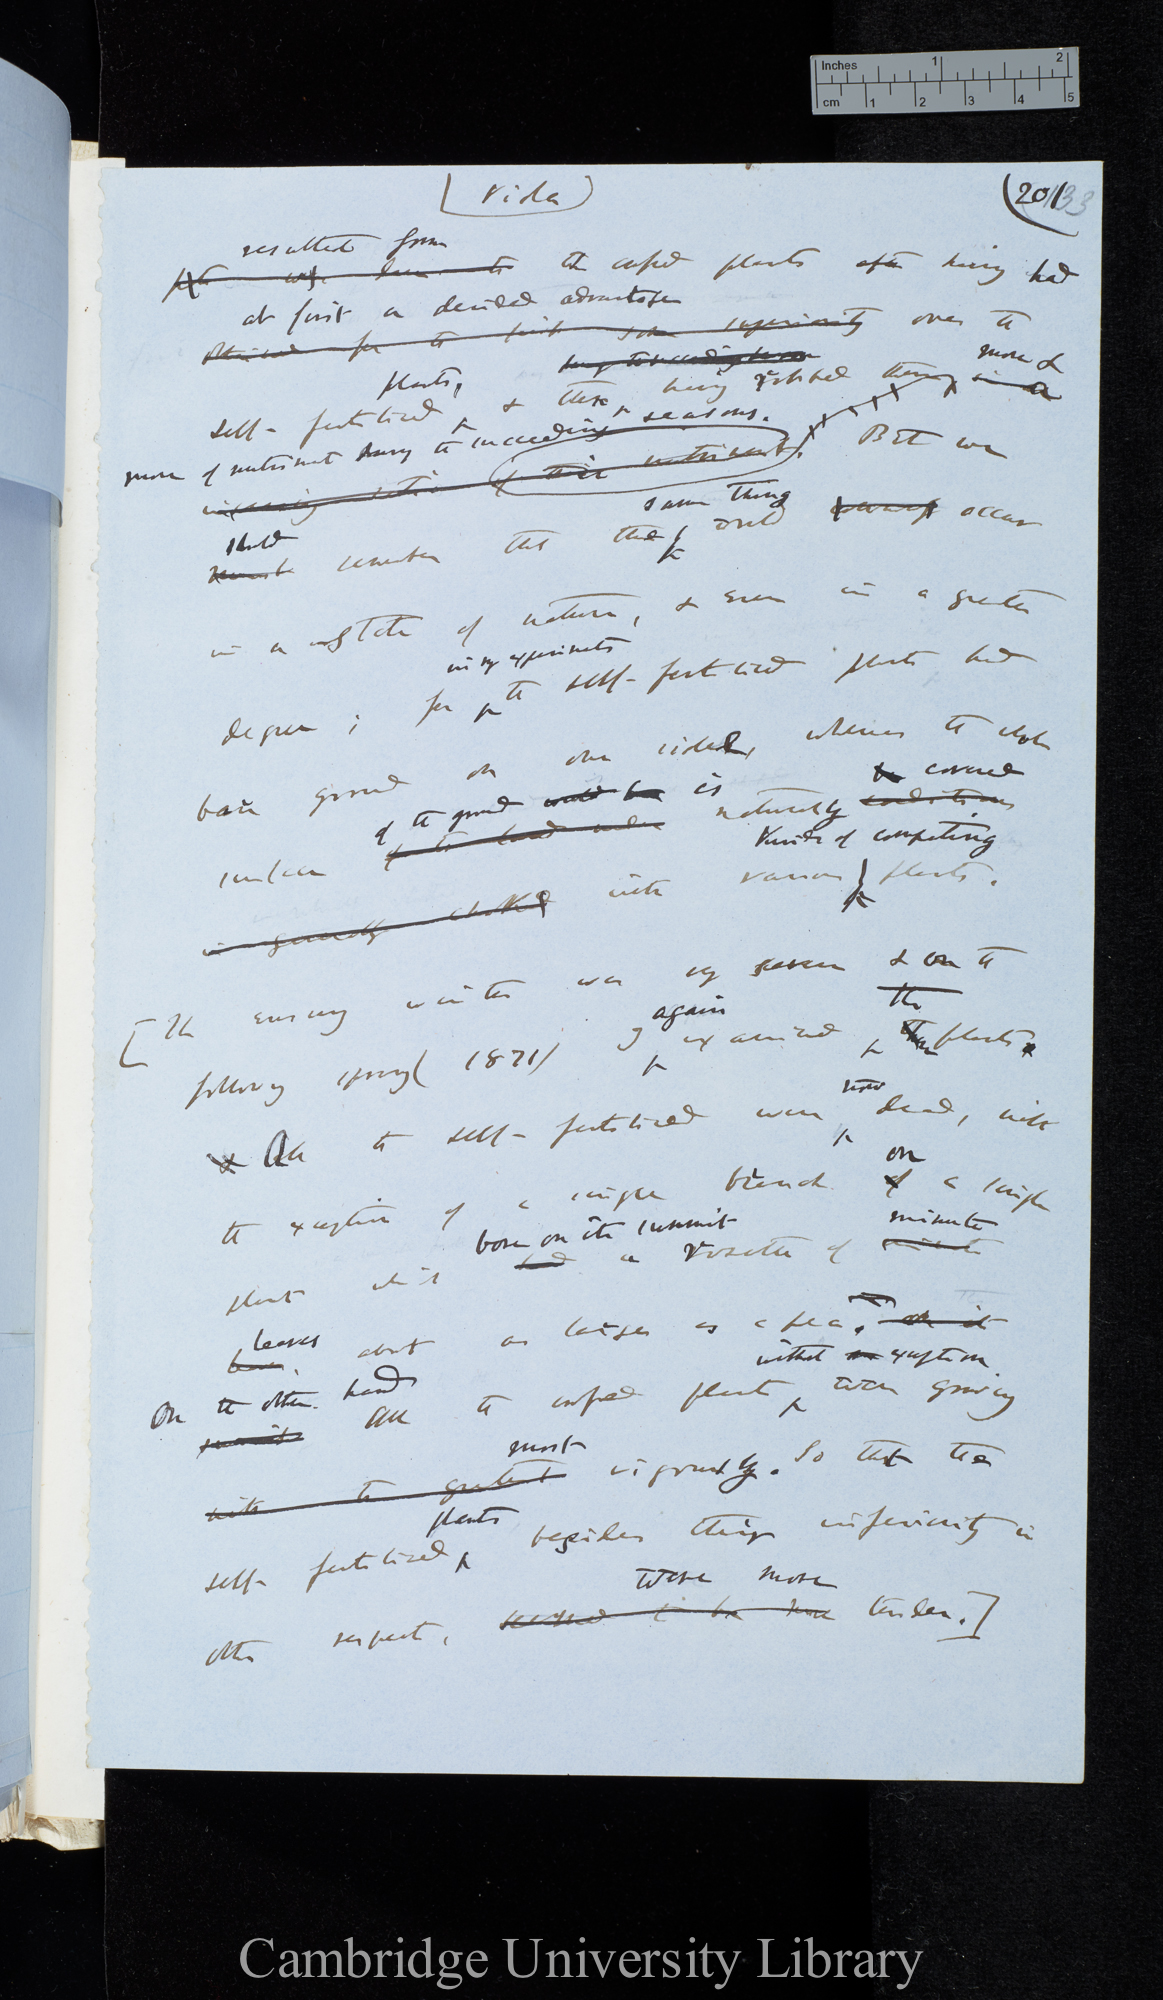 Inches 1 2
cm 1 2 3 4 5
(Viola)
(201
133
resulted from
the crossed plants after having had
at first a decided advantage
over the
plants,
more &
self-fertilised & these having robbed them in a
more of nutriment during the succeeding seasons.
of their nutriment. But we
same thing
should
must remember that this would occur
in a state of nature, & even in a greater
in my experiments
degree; for the self-fertilised plants had
bare ground on one side, whereas the whole
covered
of the ground would be is
surface of the land under naturally conditions
kinds of competing
is generally choked with various plants.
[The ensuing winter was very severe & on the
again the
following spring (1871) I examined plants
now
& All the self-fertilised were dead, with
on
the exception of a single branch of a single
bore on its summit minute
plant which had a rosette of minute
leaves about as large as a pea, on its
without exception
On the other hand All the crossed plants were growing
summit
most
with the greatest vigorously. So that the
plants
self-fertilised, besides their inferiority in
were more
other respects, seemed to be more tender.]
Cambridge University Library